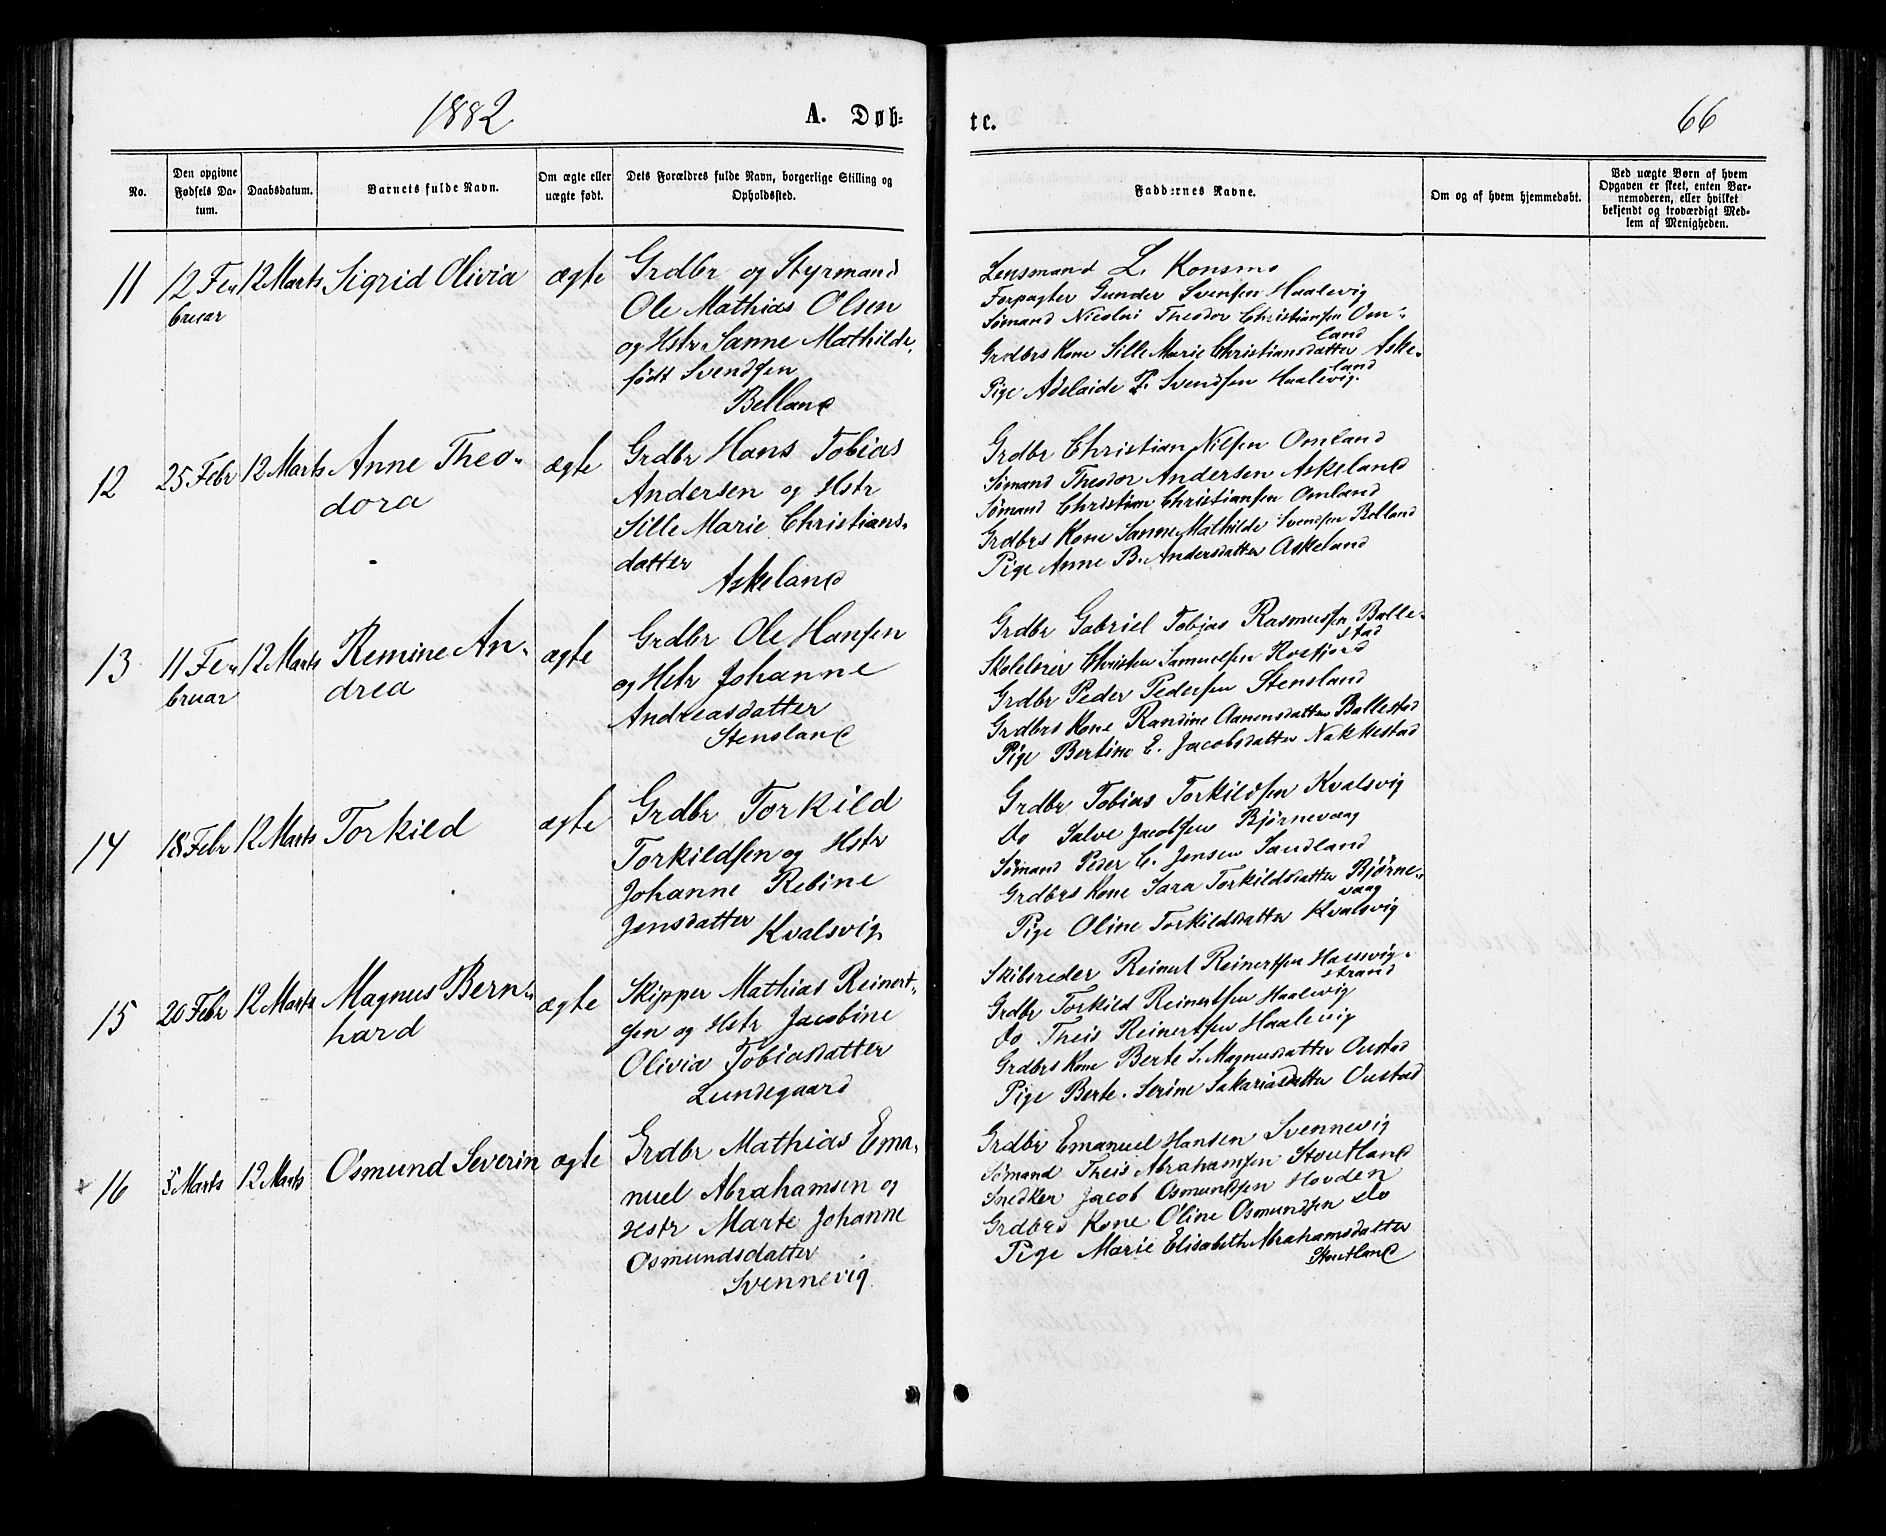 1882
A. Døb-
No.
Den opgivne
Fødsels Da-
tum.
Daabsdatum.
Barnets fulde Navn.
Om ægte eller
uægte født.
Dets Forældres fulde Navn, borgerlige Stilling og
Opholdssted.
11 12 Fe- 12 Marts Sigrid Olivia ægte Grdbr og Styrmand
bruar Ole Mathias Olsen
og Hstr Sanne Mathilde,
født Svendsen
Belland
12 25 Febr 12 Marts Anne Theo- ægte Grdbr Hans Tobias
dora Andersen og Hstr
Sille Marie Christians-
datter
Askeland
13 11 Fe- 12 Marts Remine An- ægte Grdbr Ole Hansen
bruar drea og Hstr Johanne
Andreasdatter
Stensland
14 18 Febr 12 Marts Torkild ægte Grdbr Torkild
Torkildsen og Hstr
Johanne Rebine
Jensdatter Kvalsvig
15 20 Febr 12 Marts Magnus Bern- ægte Skipper Mathias Reinert-
hard sen og Hstr Jacobine
Olivia Tobiasdatter
Lundegaard
16 5 Marts 12 Marts Osmund Severin ægte Grdbr Mathias Ema-
nuel Abrahamsen og
Hstr Marte Johanne
Osmundsdatter
Svennevig
te.
66
Faddernes Navne.
Om og af hvem hjemmedøbt.
Ved uægte Børn af hvem
Opgaven er skeet, enten Bar-
nemoderen, eller hvilket
bekjendt og troværdigt Med-
lem af Menigheden.
Lensmand L. Konsmo
Forpagter Gunder Svensen Haalevig
Sømand Nicolai Theodor Christiansen Om-
land
Grdbrs Kone Sille Marie Christiansdatter Aske-
land
Pige Adelaide P. Svendsen Haalevig.
Grdbr Christian Nilsen Omland
Sømand Theodor Andersen Askeland
Sømand Christian Christiansen Omland
Grdbrs Kone Sanne Mathilde Svendsen Belland
Pige Anne B. Andersdatter Askeland
Grdbr Gabriel Tobias Rasmussen Balle-
stad
Skolelærer Christen Samuelsen Rosfjord
Grdbr Peder Pedersen Stensland
Grdbrs Kone Randine Aanensdatter Ballestad
Pige Bertine E. Jacobsdatter Nakkestad
Grdbr Tobias Torkildsen Kvalsvig
do Salve Jacobsen Bjørnevaag
Sømand Peder C. Jensen Sandland
Grdbrs Kone Sara Torkildsdatter Bjørne-
vaag
Pige Oline Torkildsdatter Kvalsvig
Skibsreder Reinert Reinertsen
strand
Grdbr Torkild Reinertsen Haalevig
do Theis Reinertsen Haalevig
Grdbrs Kone Berte S. Magnusdatter Oustad
Pige Berte Serine Sakariasdatter Oustad
Grdbr Emanuel Hansen Svennevig
Sømand Theis Abrahamsen Stoutland
Snedker Jacob Osmundsen Hovden
Grdbrs Kone Oline Osmundsen do
Pige Marie Elisabeth Abrahamsdatter
Stoutland